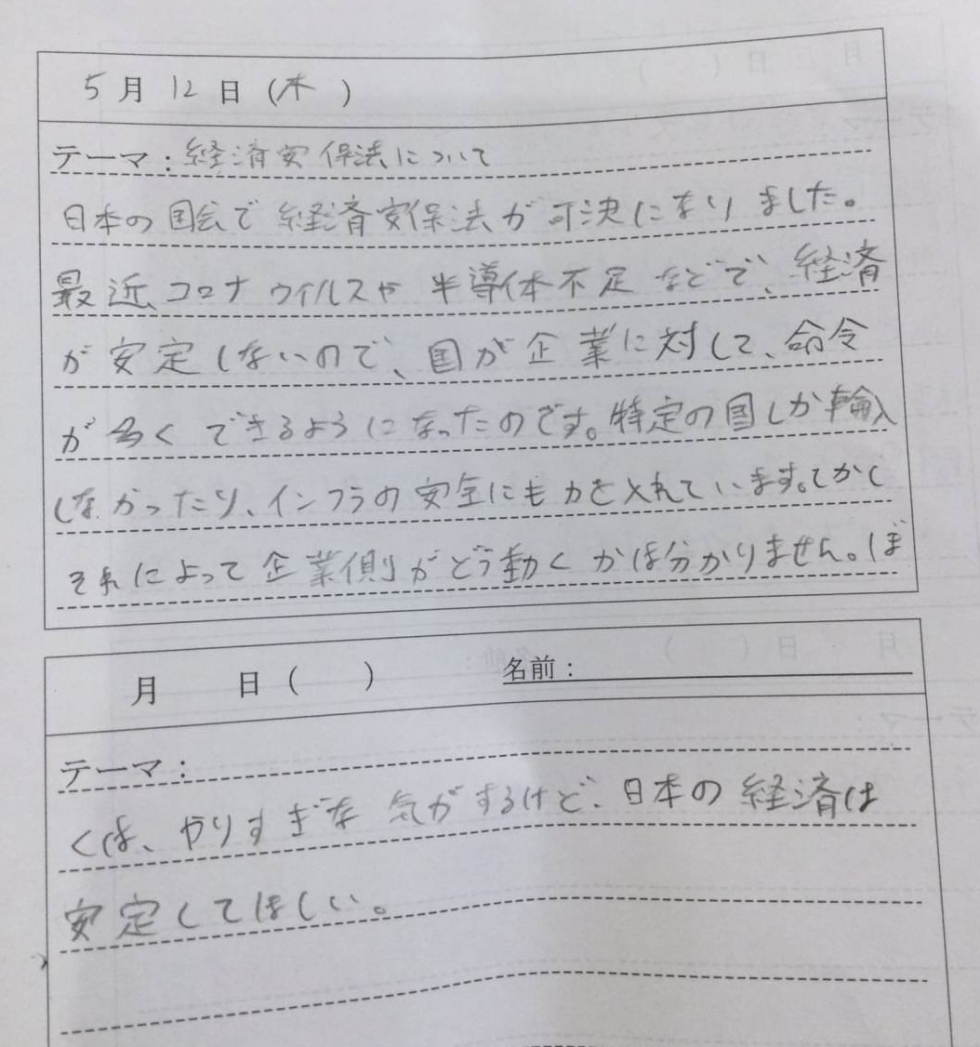 5月12日(木)
テーマ:経済安保法について
日本の国会で経済安保法が可決になりました。
最近コロナウイルスや半導体不足などで、経済
が安定しないので、国が企業に対して、命令
が多くできるようになったのです。特定の国しか輸入
しなかったり、インフラの安全にも力を入れています。しかし
それによって企業側がどう動くかは分かりません。ぼ
月 日( ) 名前:
テーマ:
くは、やりすぎな気がするけど、日本の経済は
安定してほしい。